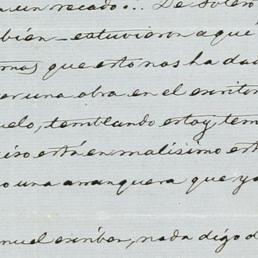 un recado... De Sotero
bién - estuvieron aqui
que esto nos ha dad
er una obra en el escritor
uelo, temblando estoy, tem
iso está en malísimo est
o una arranquera que ya
nuel escriben, nada digo d